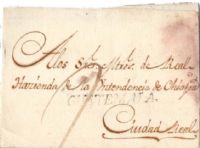 A los Sres. Mtros. de Real
Hacienda de la Yntendencia de Chiapa
GUATEMALA
Ciudad Real